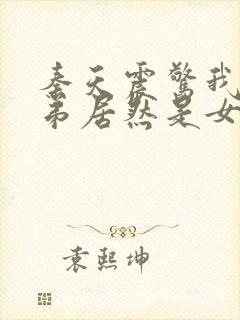 奉天震惊我
弟居然是女
袁熙坤